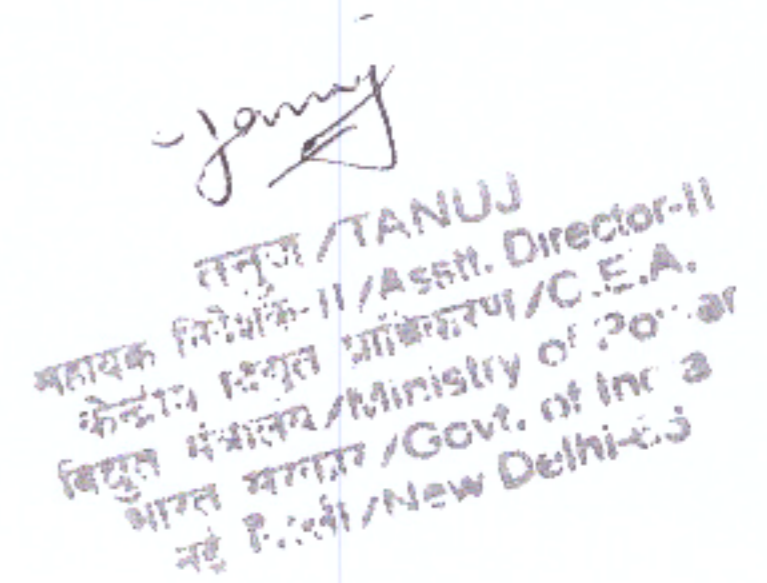 तनुज /TANUJ
सहायक निदेशक-II /Asstt. Director-II
केन्द्रीय विद्युत प्राधिकरण /C.E.A.
विद्युत मंत्रालय /Ministry of Power
भारत सरकार /Govt. of India
नई दिल्ली /New Delhi-